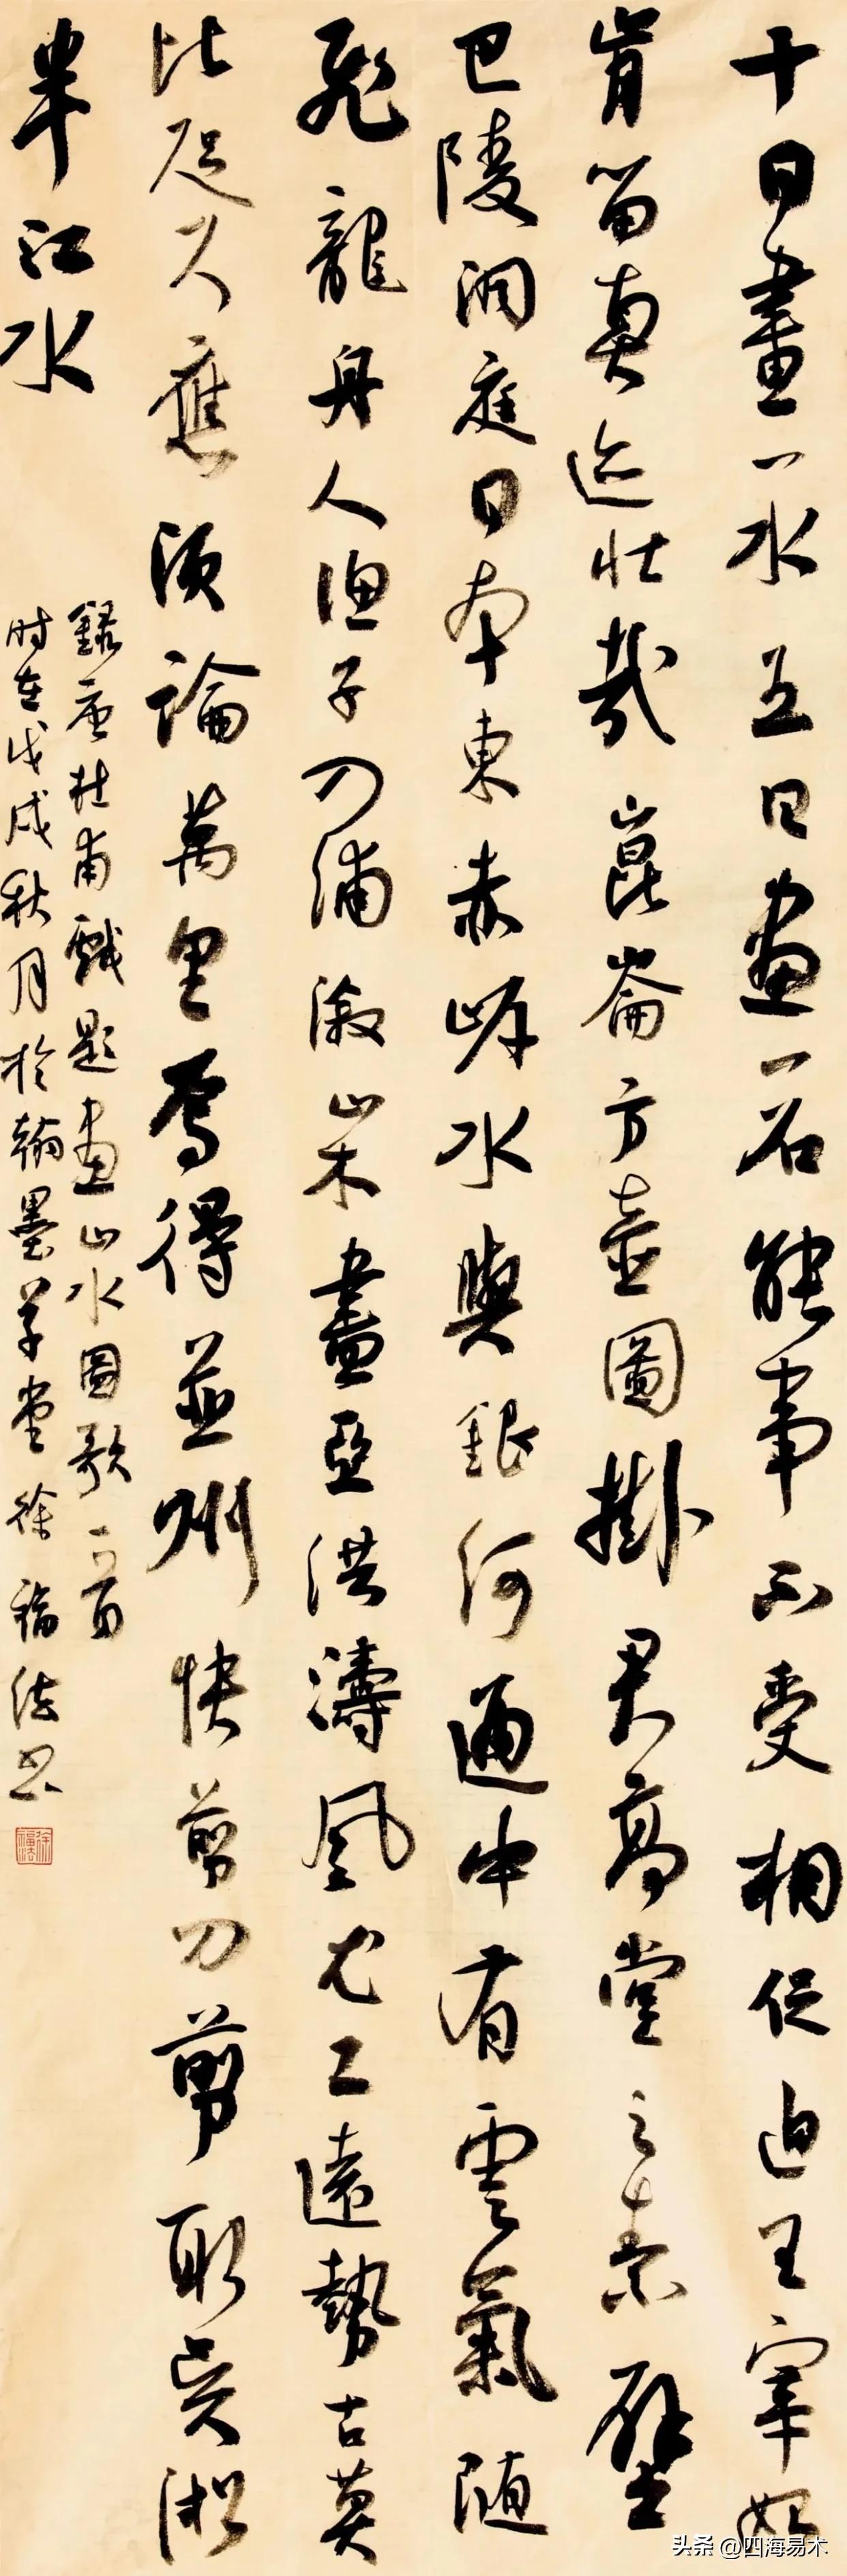 十日畫一水五日畫一石能事不受相促迫王宰始
肯留真迹壯哉崑崙方壺圖掛君高堂之素壁
巴陵洞庭日本東赤岸水與銀河通中有雲氣隨
飛龍舟人漁子入浦漵山木盡亞洪濤風尤工遠勢古莫
比咫尺應須論萬里焉得並州快剪刀剪取吳淞
半江水
錄唐杜甫戲題畫山水圖歌一首
时在戊戌秋月於翰墨草堂徐福法书
徐福法
头条 @四海易木